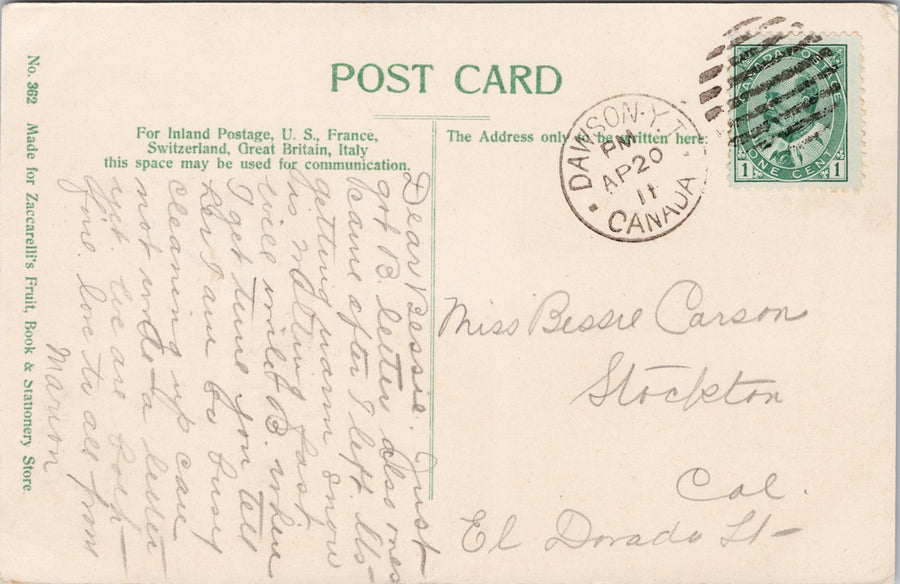 POST CARD
For Inland Postage, U. S., France,
Switzerland, Great Britain, Italy
this space may be used for communication.
The Address only to be written here.
No. 362 Made for Zaccarelli's Fruit, Book & Stationery Store.
DAWSON-Y.T.
PM
AP 20
11
CANADA
CANADA POSTAGE
ONE CENT
1 1
Dear Bessie. Just
got B. letter also ones
came after I left. Its
getting warm snow
is melting fast
will write B. when
I get time you tell
her I am so busy
cleaning up can
not write a letter
yet. We are both
fine. love to all from
Marion
Miss Bessie Carson
Stockton
Cal.
El Dorado St-